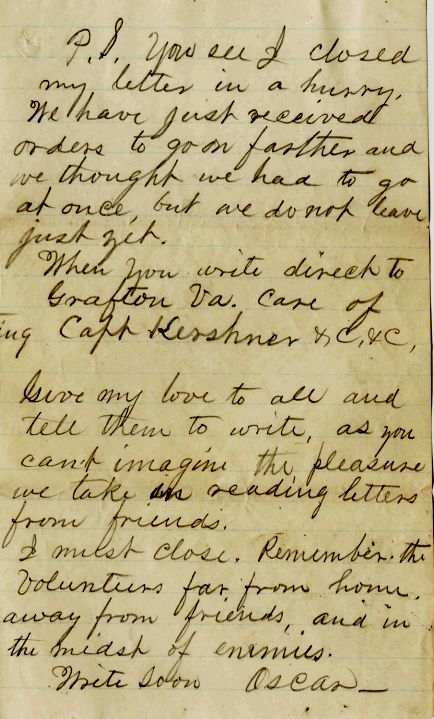 P.S. You see I closed
my letter in a hurry.
We have just received
orders to go on farther and
we thought we had to go
at once, but we do not leave
just yet.
When you write direct to
Grafton Va. Care of
Capt Kershner &C, &C,
Give my love to all and
tell them to write, as you
can't imagine the pleasure
we take in reading letters
from friends.
I must close. Remember the
Volunteers far from home,
away from friends, and in
the midst of enemies.
Write soon Oscar